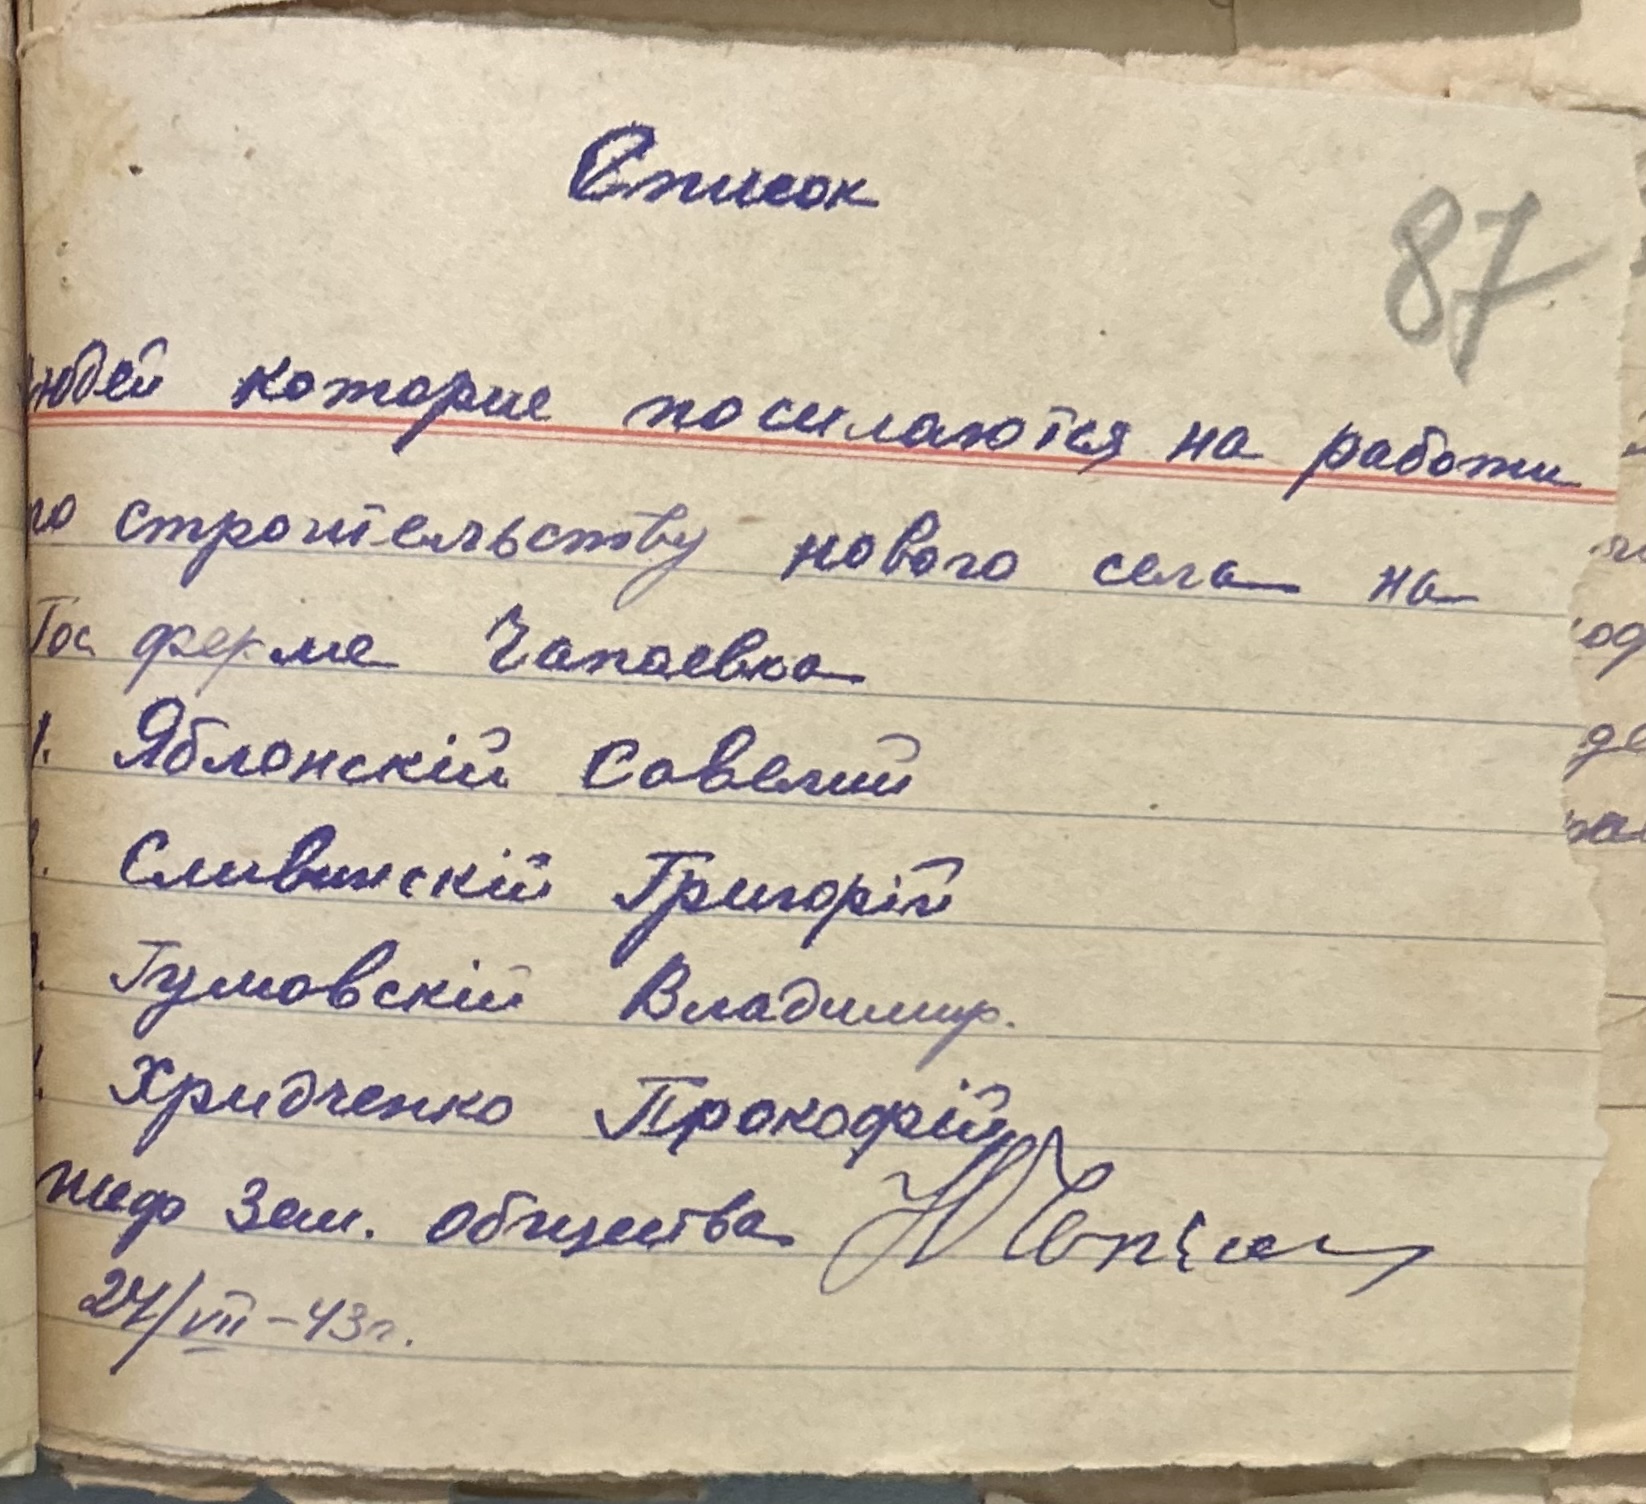 Список
87
людей которие посилаются на работи
по строительству нового села на
Гос ферме Чапаевка
1. Яблонскій Савелий
2. Сливинскій Григорій
3. Гумовскій Владимир.
4. Хридченко Прокофій
шеф Зем. общества
24/VII-43г.